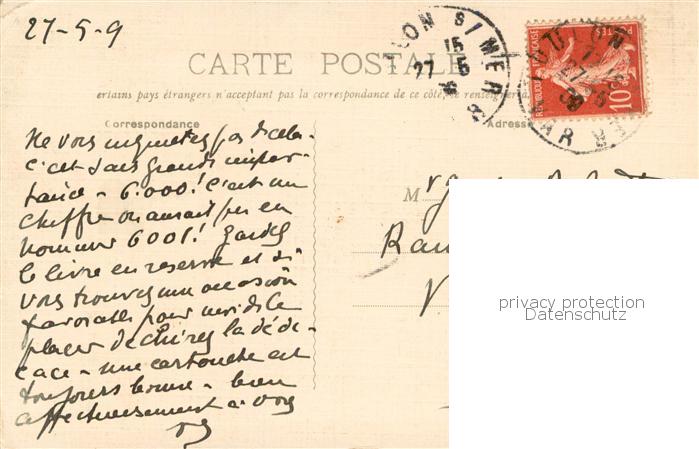 27-5-9
CARTE POSTALE
ertains pays étrangers n'acceptant pas la correspondance de ce côté, se renseigner
Correspondance
Adresse
Ne vous inquietez pas de cela
c'est sans grande impor-
tance - 6.000! c'est un
chiffre on aurait pu en
nommer 6001! gardez
le livre en reserve et si
vous trouvez une occasion
favorable pour
placer la dédi-
cace - une cartouche est
toujours bonne - bien
affectueusement à vous
M
10
S/MER
15
27 5
privacy protection
Datenschutz